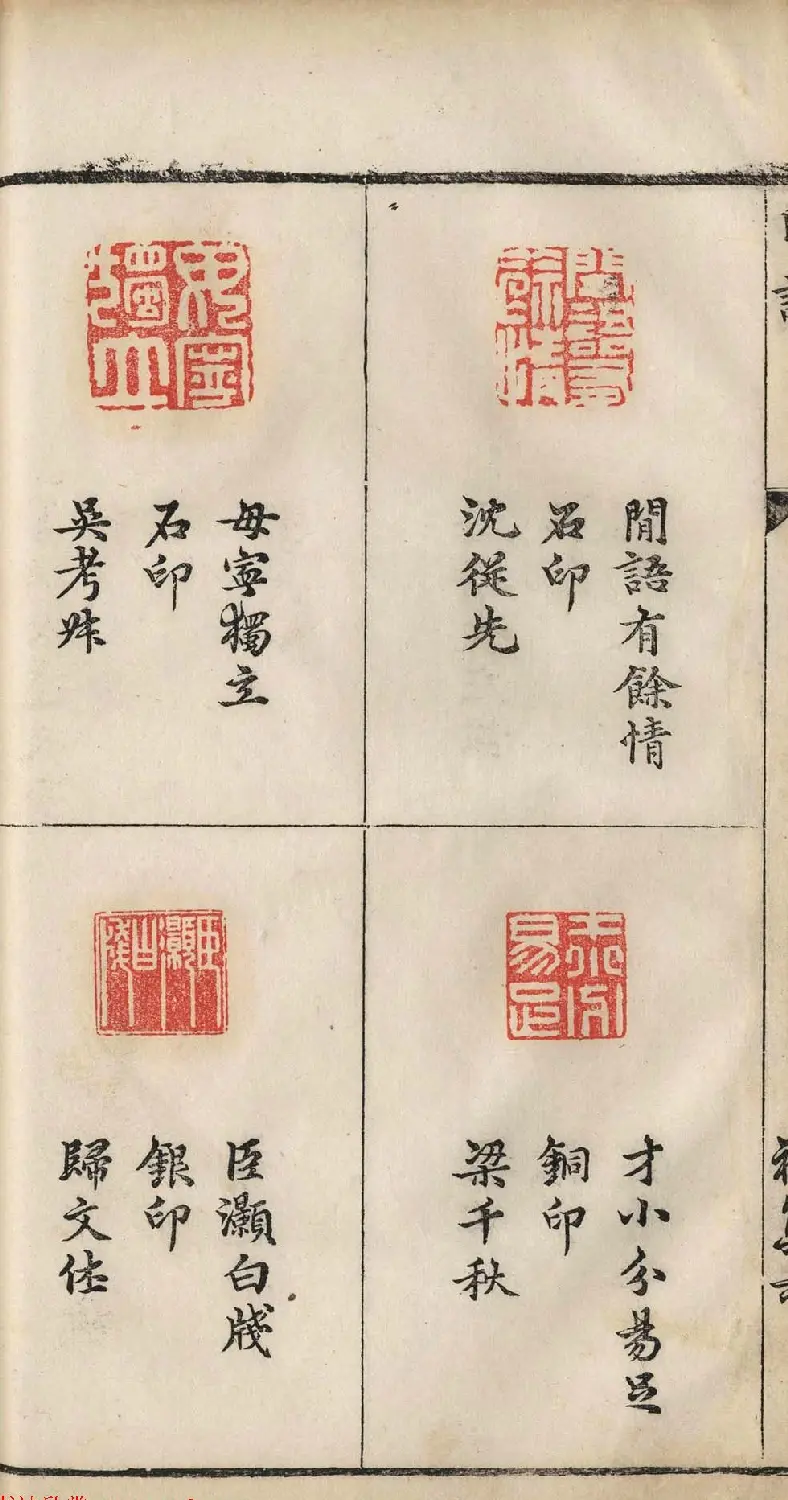 閒語有餘情
石印
沈從先
毋寧獨立
石印
吳考叔
才小分易足
銅印
梁千秋
臣灝白牋
銀印
歸文休